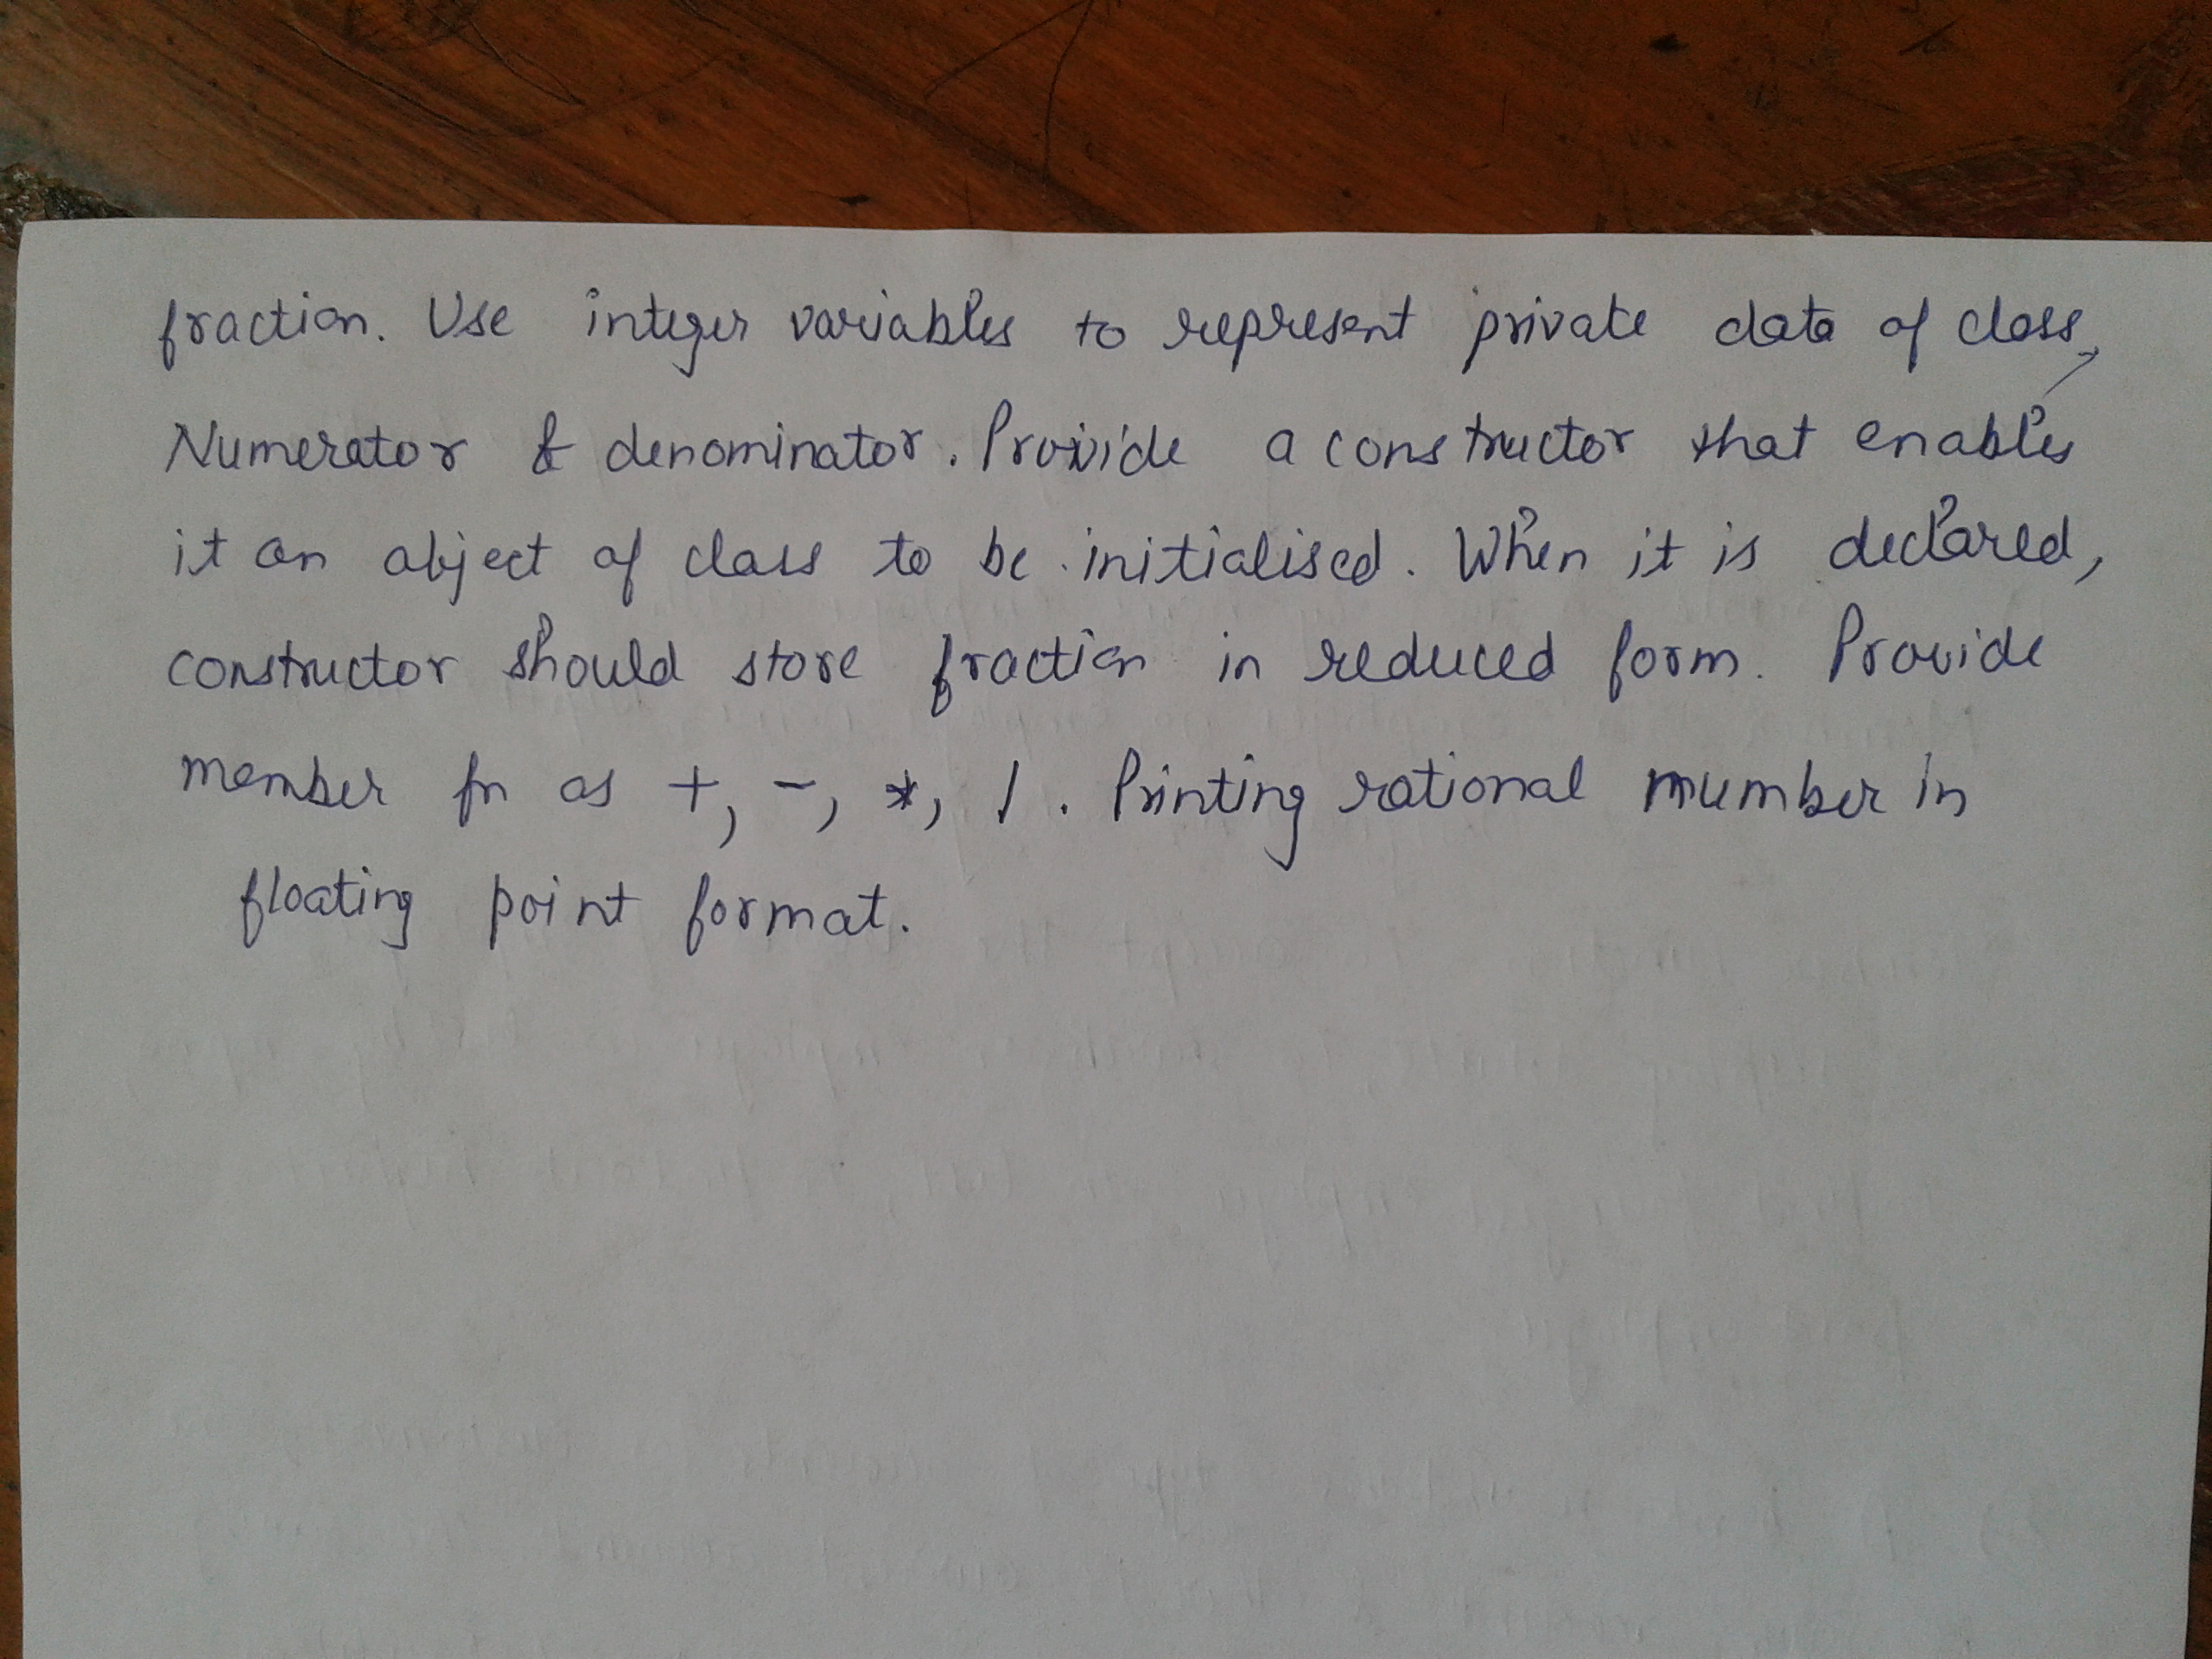 fraction. Use integer variables to represent private data of class,
Numerator & denominator. Provide a constructor that enables
it an object of class to be initialised. When it is declared,
constructor should store fraction in reduced form. Provide
member fn as +, -, *, /. Printing rational number in
floating point format.